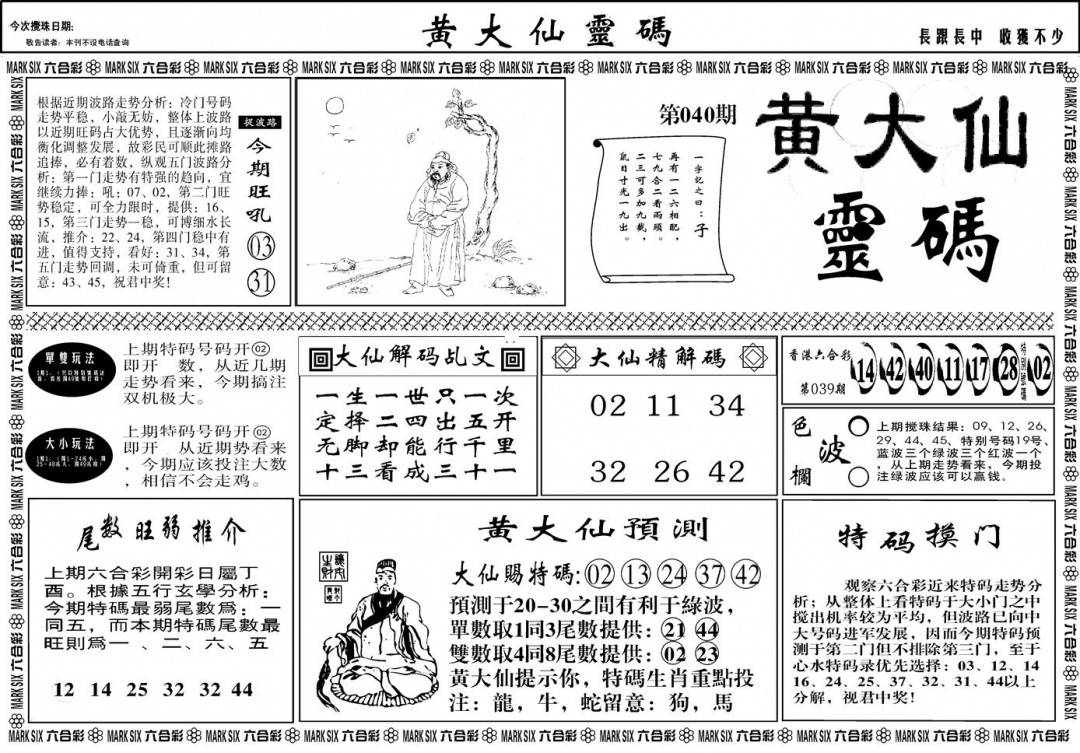 今次攪珠日期:
敬告读者：本刊不设电话查询
黄大仙靈碼
長跟長中 收獲不少
MARK SIX 六合彩 MARK SIX 六合彩 MARK SIX 六合彩 MARK SIX 六合彩 MARK SIX 六合彩 MARK SIX 六合彩 MARK SIX 六合彩 MARK SIX 六合彩 MARK SIX 六合彩 MARK SIX 六合彩 MARK SIX 六合彩
根据近期波路走势分析：冷门号码
走势平稳，小敲无妨，整体上波路
以近期旺码占大优势，且逐渐向均
衡化调整发展，故彩民可顺此摊路
追捧，必有着数，纵观五门波路分
析：第一门走势有特强的趋向，宜
继续力捧：吼：07、02，第二门旺
势稳定，可全力限时，提供：16、
15，第三门走势一稳，可博细水长
流，推介：22、24，第四门稳中有
进，值得支持，看好：31、34，第
五门走势回调，未可倚重，但可留
意：43、45，祝君中奖！
捉波路
今期旺吼
03
31
第040期
一字记之曰：子
再有一二六相配，
七九合二看兩頭。
二三可多加九截，
鼠目寸光一九出。
黄大仙
靈碼
單雙玩法
上期特码号码开02
即开　数，从近几期
走势看来，今期搞注
双机极大。
大小玩法
上期特码号码开02
即开　从近期势看来
，今期应该投注大数
，相信不会走鸡。
大仙解码乩文
一生一世只一次
定择二四出五开
无脚却能行千里
十三看成三十一
大仙精解碼
02 11 34
32 26 42
香港六合彩
第039期
14 42 40 11 17 28 特别號碼 02
色波欄
上期搅珠结果：09、12、26、
29、44、45、特别号码19号、
蓝波三个绿波三个红波一个
，从上期走势看来，今期投
注绿波应该可以赢钱。
尾数旺弱推介
上期六合彩開彩日屬丁
酉。根據五行玄學分析：
今期特碼最弱尾數爲：一
同五，而本期特碼尾數最
旺則爲一 、二、六、五
12 14 25 32 32 44
黄大仙預測
大仙賜特碼：02 13 24 37 42
預測于20-30之間有利于綠波，
單數取1同3尾數提供：21 44
雙數取4同8尾數提供：02 23
黄大仙提示你，特碼生肖重點投
注：龍，牛，蛇留意：狗，馬
特码摸门
观察六合彩近来特码走势分
析；从整体上看特码于大小门之中
搅出机率较为平均，但波路已向中
大号码进军发展，因而今期特码预
测于第二门但不排除第三门，至于
心水特码录优先选择：03、12、14
16、24、25、37、32、31、44以上
分解，祝君中奖！
MARK SIX 六合彩 MARK SIX 六合彩 MARK SIX 六合彩 MARK SIX 六合彩 MARK SIX 六合彩 MARK SIX 六合彩 MARK SIX 六合彩 MARK SIX 六合彩 MARK SIX 六合彩 MARK SIX 六合彩 MARK SIX 六合彩